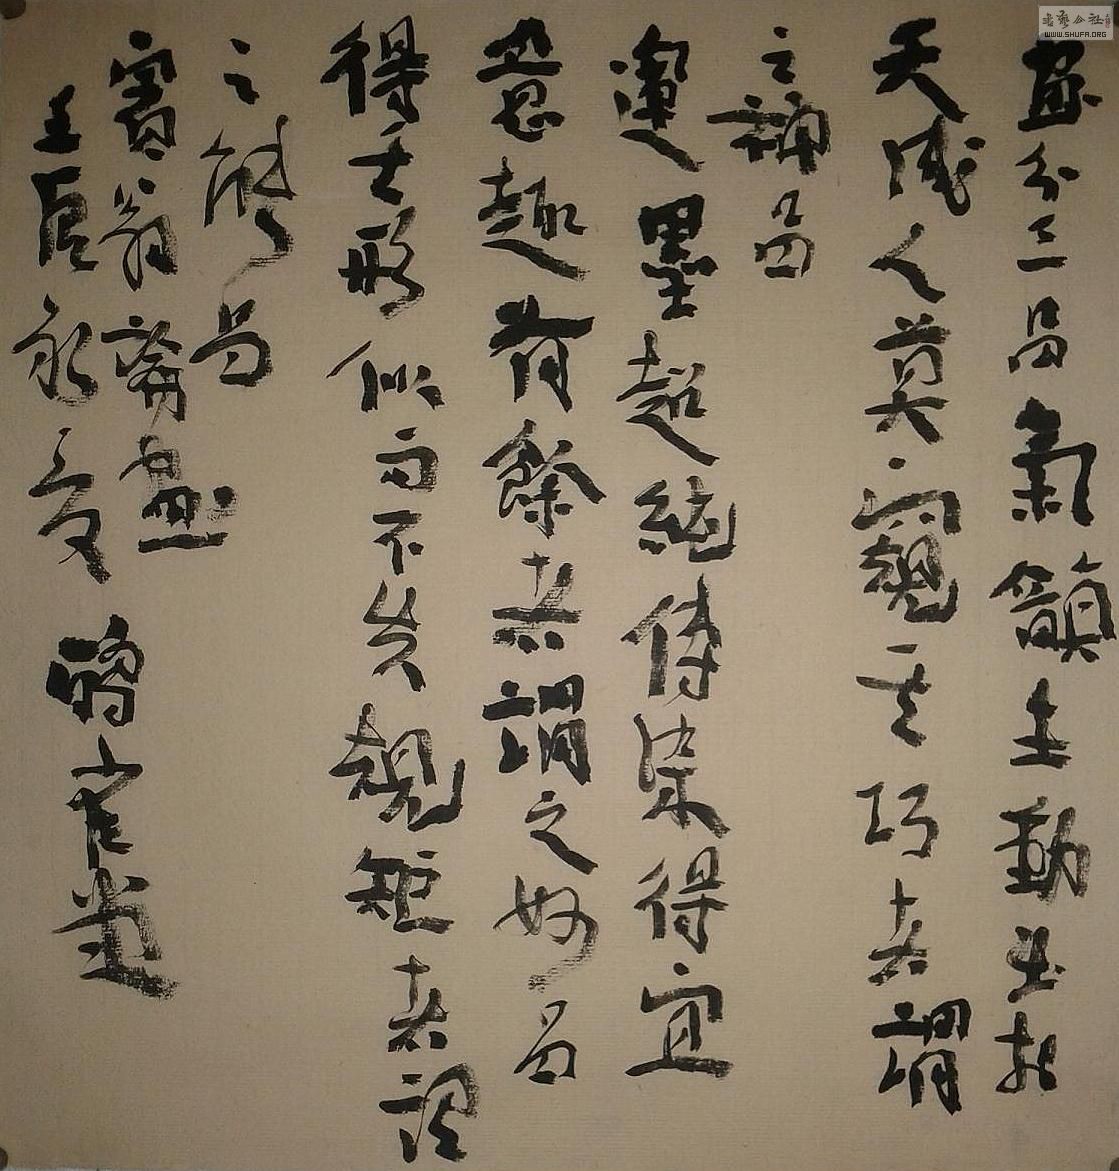 書藝公社
WWW.SHUFA.ORG
畫分三品氣韻生動出於
天成人莫窺其巧者謂
之神品
運墨超絕傳染得宜
意趣有餘者謂之妙品
得其形似而不失規矩者謂
之能品
賓翁論畫
壬辰永受